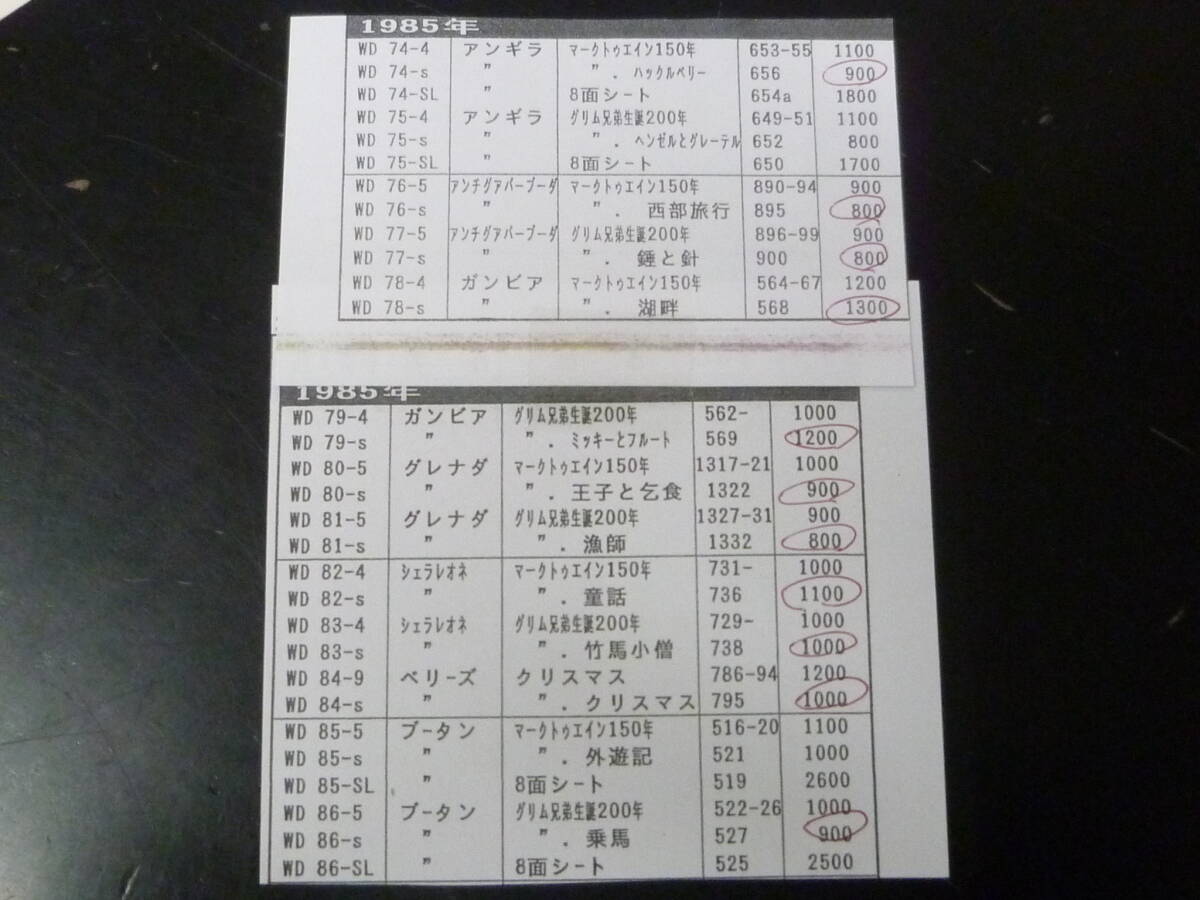 1985年
WD 74-4 アンギラ マークトゥエイン150年 653-55 1100
WD 74-s 〃 〃. ハックルベリー 656 900
WD 74-SL 〃 8面シート 654a 1800
WD 75-4 アンギラ グリム兄弟生誕200年 649-51 1100
WD 75-s 〃 〃. ヘンゼルとグレーテル 652 800
WD 75-SL 〃 8面シート 650 1700
WD 76-5 アンチグアバーブーダ マークトゥエイン150年 890-94 900
WD 76-s 〃 〃. 西部旅行 895 800
WD 77-5 アンチグアバーブーダ グリム兄弟生誕200年 896-99 900
WD 77-s 〃 〃. 錘と針 900 800
WD 78-4 ガンビア マークトゥエイン150年 564-67 1200
WD 78-s 〃 〃. 湖畔 568 1300
1985年
WD 79-4 ガンビア グリム兄弟生誕200年 562- 1000
WD 79-s 〃 〃. ミッキーとフルート 569 1200
WD 80-5 グレナダ マークトゥエイン150年 1317-21 1000
WD 80-s 〃 〃. 王子と乞食 1322 900
WD 81-5 グレナダ グリム兄弟生誕200年 1327-31 900
WD 81-s 〃 〃. 漁師 1332 800
WD 82-4 シェラレオネ マークトゥエイン150年 731- 1000
WD 82-s 〃 〃. 童話 736 1100
WD 83-4 シェラレオネ グリム兄弟生誕200年 729- 1000
WD 83-s 〃 〃. 竹馬小僧 738 1000
WD 84-9 ベリーズ クリスマス 786-94 1200
WD 84-s 〃 〃. クリスマス 795 1000
WD 85-5 ブータン マークトゥエイン150年 516-20 1100
WD 85-s 〃 〃. 外遊記 521 1000
WD 85-SL 〃 8面シート 519 2600
WD 86-5 ブータン グリム兄弟生誕200年 522-26 1000
WD 86-s 〃 〃. 乗馬 527 900
WD 86-SL 〃 8面シート 525 2500